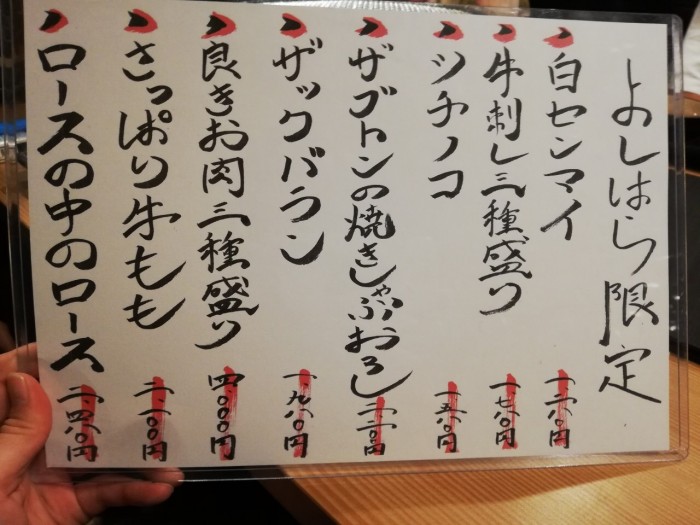 よしはら限定
白センマイ 一、二八〇円
牛刺し三種盛り 一、七八〇円
ツチノコ 一、五八〇円
ザブトンの焼きしゃぶおろし
ザックバラン 一、九八〇円
良きお肉三種盛り 四、〇〇〇円
さっぱり牛もも 二、一〇〇円
ロースの中のロース 二、四八〇円